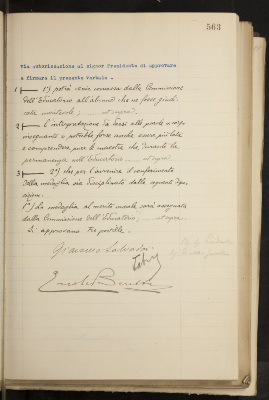 563
via autorizzazione al signor Presidente di approvare
e firmare il presente verbale.
1) potrà venir concessa dalla Commissione
dell'Educatorio all'alunno che ne fosse giudi-
cato meritevole; ... ut supra.
2 L'interpretazione da darsi alle parole
insegnante e potrebbe forse anche essere più lata
e comprendere pure le maestre che durante la
permanenza nell'Educatorio ... ut supra.
3 2) che per l'avvenire il conferimento
della medaglia sia disciplinato dalle seguenti dispo-
sizioni.
1°) La medaglia al merito morale sarà assegnata
dalla Commissione dell'Educatorio, ... ut supra.
Si approvano tre postille.